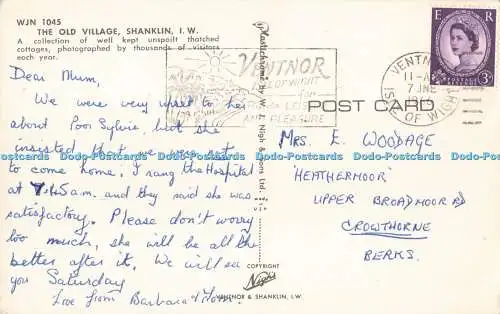 WJN 1045
THE OLD VILLAGE, SHANKLIN, I.W.
A collection of well kept unspoilt thatched
cottages, photographed by thousands of visitors
each year.
Dear Mum,
We were very upset to hear
about Poor Sylvie, but she
insisted that we were not
to come home. I rang the Hospital
at 7.45am. and they said she was
satisfactory. Please don't worry
too much, she will be all the
better after it. We will see
you Saturday
Love from Barbara & Tom.
Plastichrome By W. J. Nigh & Sons Ltd.
COPYRIGHT
Nigh's
VENTNOR & SHANKLIN, I.W.
VENTNOR
ISLE OF WIGHT
for
LEISURE
AND PLEASURE
POST CARD
VENTNOR
11-AM
7 JNE
ISLE OF WIGHT
E R
POSTAGE REVENUE
3D
MRS. E. WOODAGE
"HEATHERMOOR"
UPPER BROADMOOR RD
CROWTHORNE
BERKS.
Dodo-Postcards Dodo-Postcards Dodo-Postcards Dodo-Postcards Dodo-Postcards